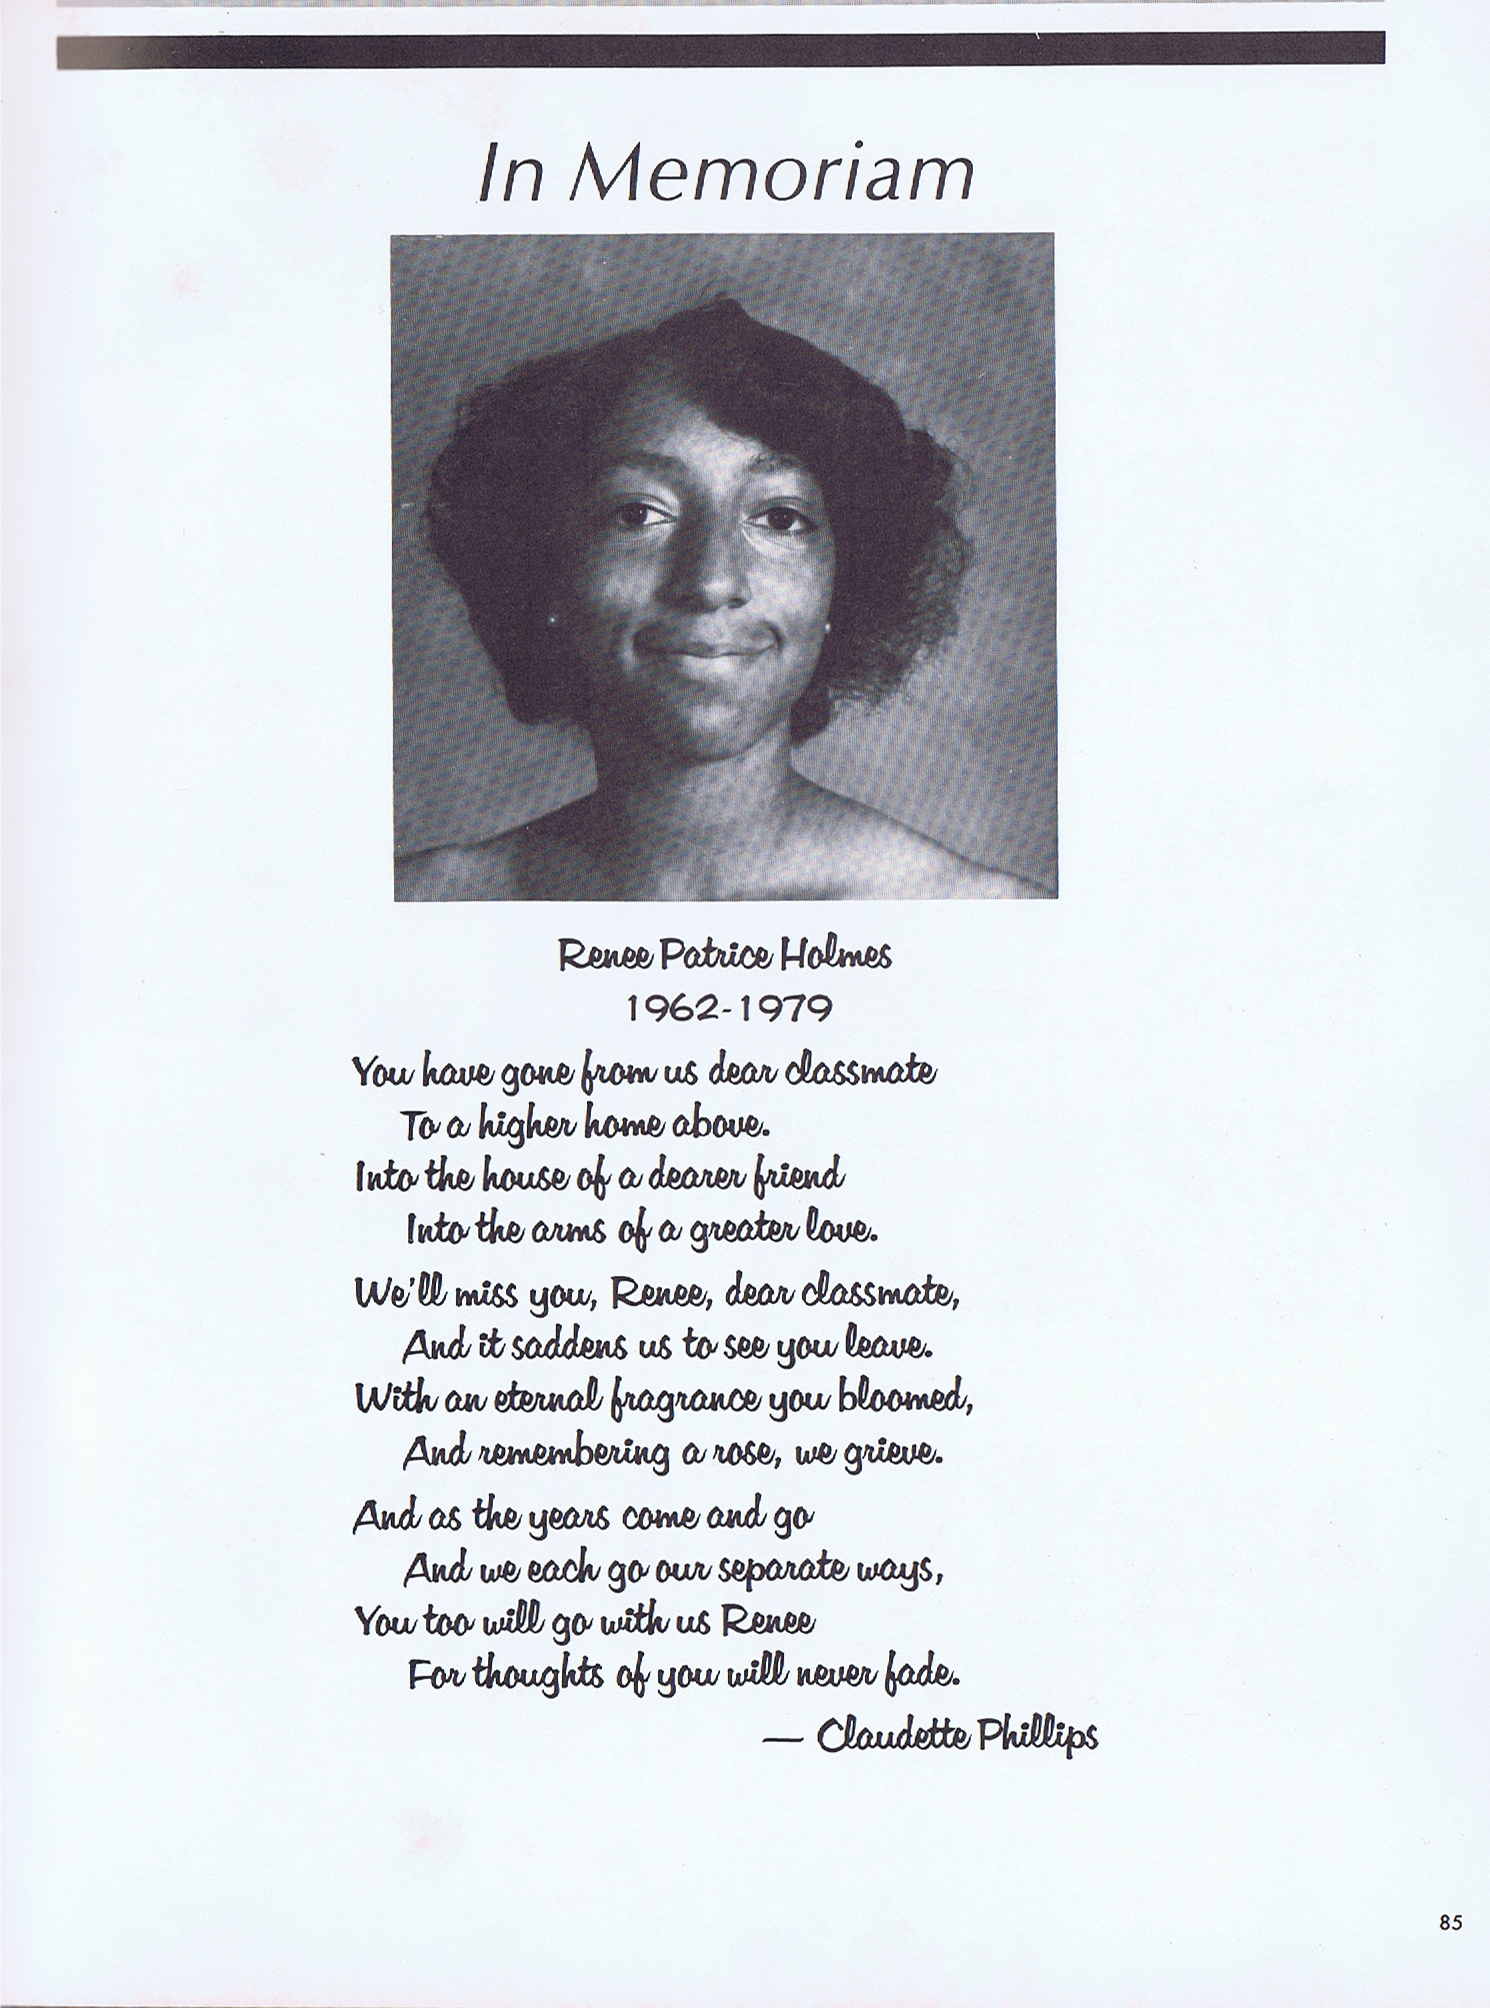 In Memoriam
Renee Patrice Holmes
1962-1979
You have gone from us dear classmate
To a higher home above.
Into the house of a dearer friend
Into the arms of a greater love.
We'll miss you, Renee, dear classmate,
And it saddens us to see you leave.
With an eternal fragrance you bloomed,
And remembering a rose, we grieve.
And as the years come and go
And we each go our separate ways,
You too will go with us Renee
For thoughts of you will never fade.
— Claudette Phillips
85